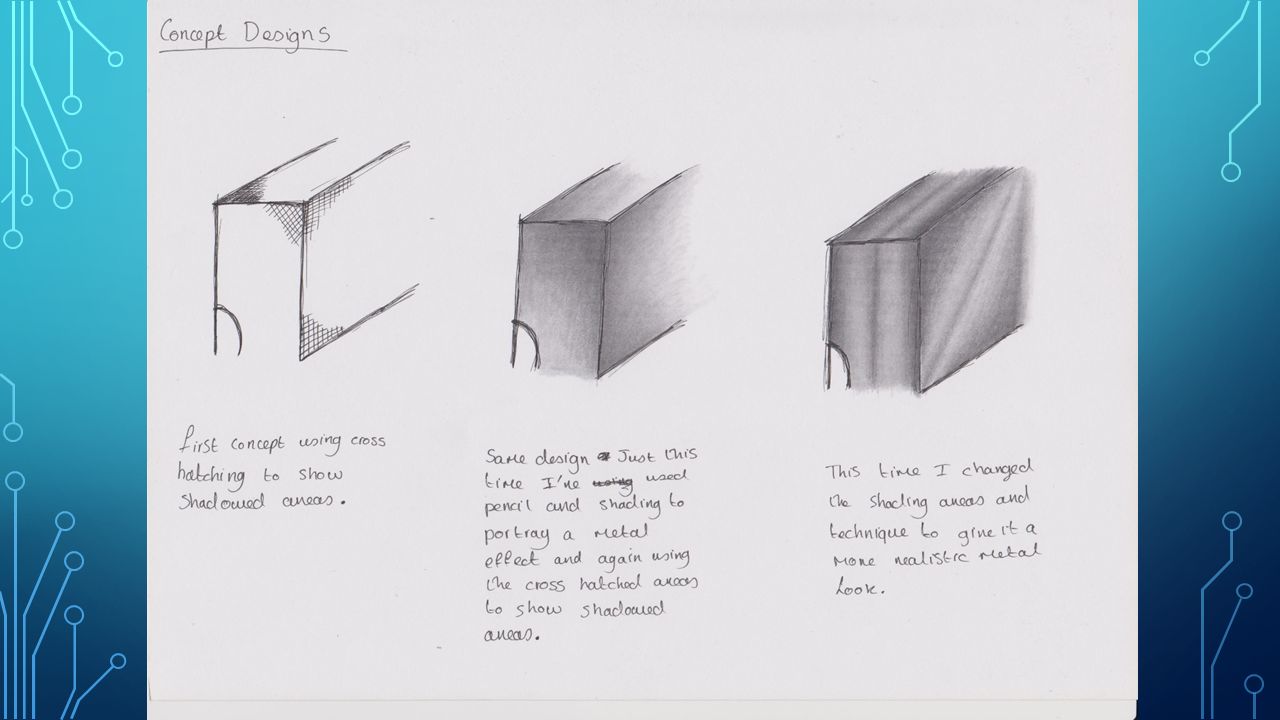 Concept Designs
first concept using cross
hatching to show
shadowed areas.
Same design Just this
time I've using used
pencil and shading to
portray a metal
effect and again using
the cross hatched areas
to show shadowed
areas.
This time I changed
the shading areas and
technique to give it a
more realistic metal
look.